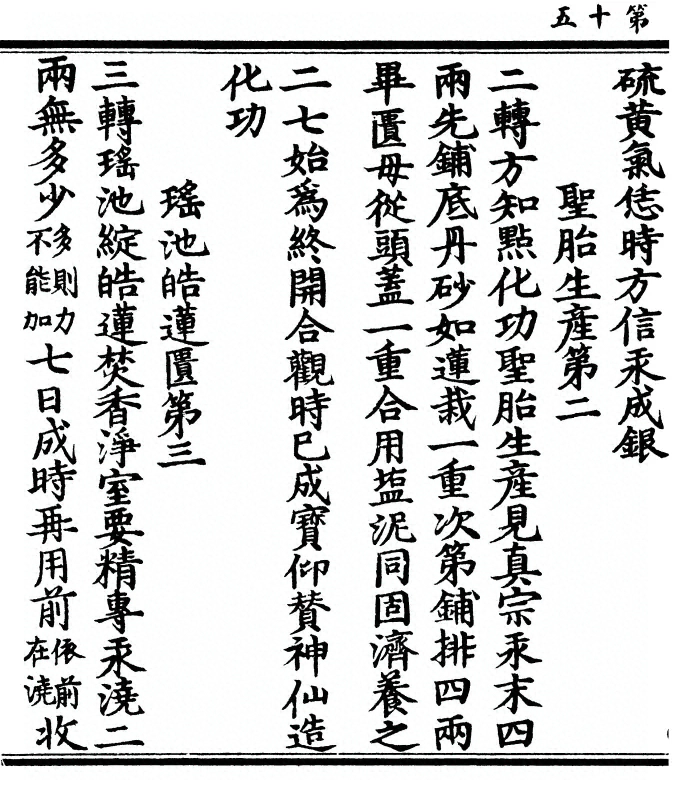 第十五
硫黄氣恁時方信汞成銀
聖胎生產第二
二轉方知點化功聖胎生產見真宗汞末四
兩先鋪底丹砂如蓮栽一重次第鋪排四兩
畢匱母從頭蓋一重合用塩泥同固濟養之
二七始爲終開合觀時已成寶仰贊神仙造
化功
瑤池皓蓮匱第三
三轉瑤池綻皓蓮焚香淨室要精專汞澆二
兩無多少多則力不能加七日成時再用前依前在澆收